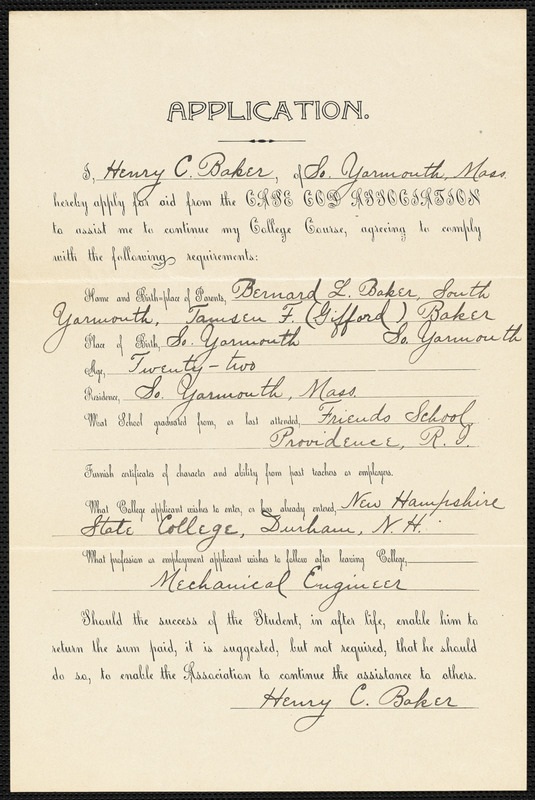 APPLICATION.
I, Henry C. Baker, of So. Yarmouth, Mass.
hereby apply for aid from the CAPE COD ASSOCIATION
to assist me to continue my College Course, agreeing to comply
with the following requirements:
Name and Birth-place of Parents, Bernard L. Baker, South
Yarmouth, Tamsen F. (Gifford) Baker
Place of Birth, So. Yarmouth So. Yarmouth
Age, Twenty-two
Residence, So. Yarmouth, Mass.
What School graduated from, or last attended, Friends School
Providence, R. I.
Furnish certificates of character and ability from past teachers or employers.
What College applicant wishes to enter, or has already entered, New Hampshire
State College, Durham, N. H.
What profession or employment applicant wishes to follow after leaving College,
Mechanical Engineer
Should the success of the Student, in after life, enable him to
return the sum paid, it is suggested, but not required, that he should
do so, to enable the Association to continue the assistance to others.
Henry C. Baker